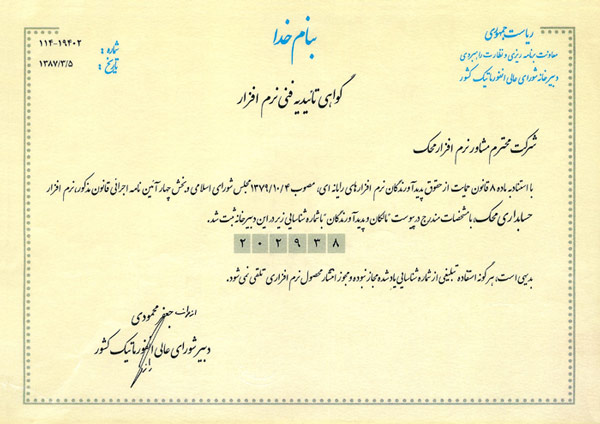 بنام خدا
ریاست جمهوری
معاونت برنامه ریزی و نظارت راهبردی
دبیرخانه شورای عالی انفورماتیک کشور
شماره : ۱۱۴-۱۹۴۰۲
تاریخ : ۱۳۸۷/۳/۵
گواهی تائیدیه فنی نرم افزار
شرکت محترم مشاور نرم افزار محک
با استناد به ماده ۸ قانون حمایت از حقوق پدیدآورندگان نرم افزارهای رایانه ای، مصوب ۱۳۷۹/۱۰/۴ مجلس شورای اسلامی و بخش چهار آئین نامه اجرائی قانون مذکور، نرم افزار
حسابداری محک، با مشخصات مندرج در پیوست "مالکان و پدیدآورندگان" با شماره شناسایی زیر در این دبیرخانه ثبت شد.
۲۰۲۹۳۸
بدیهی است، هرگونه استفاده تبلیغی از شماره شناسایی یاد شده مجاز نبوده و مجوز انتشار محصول نرم افزاری تلقی نمی شود.
جعفر محمودی
دبیر شورای عالی انفورماتیک کشور